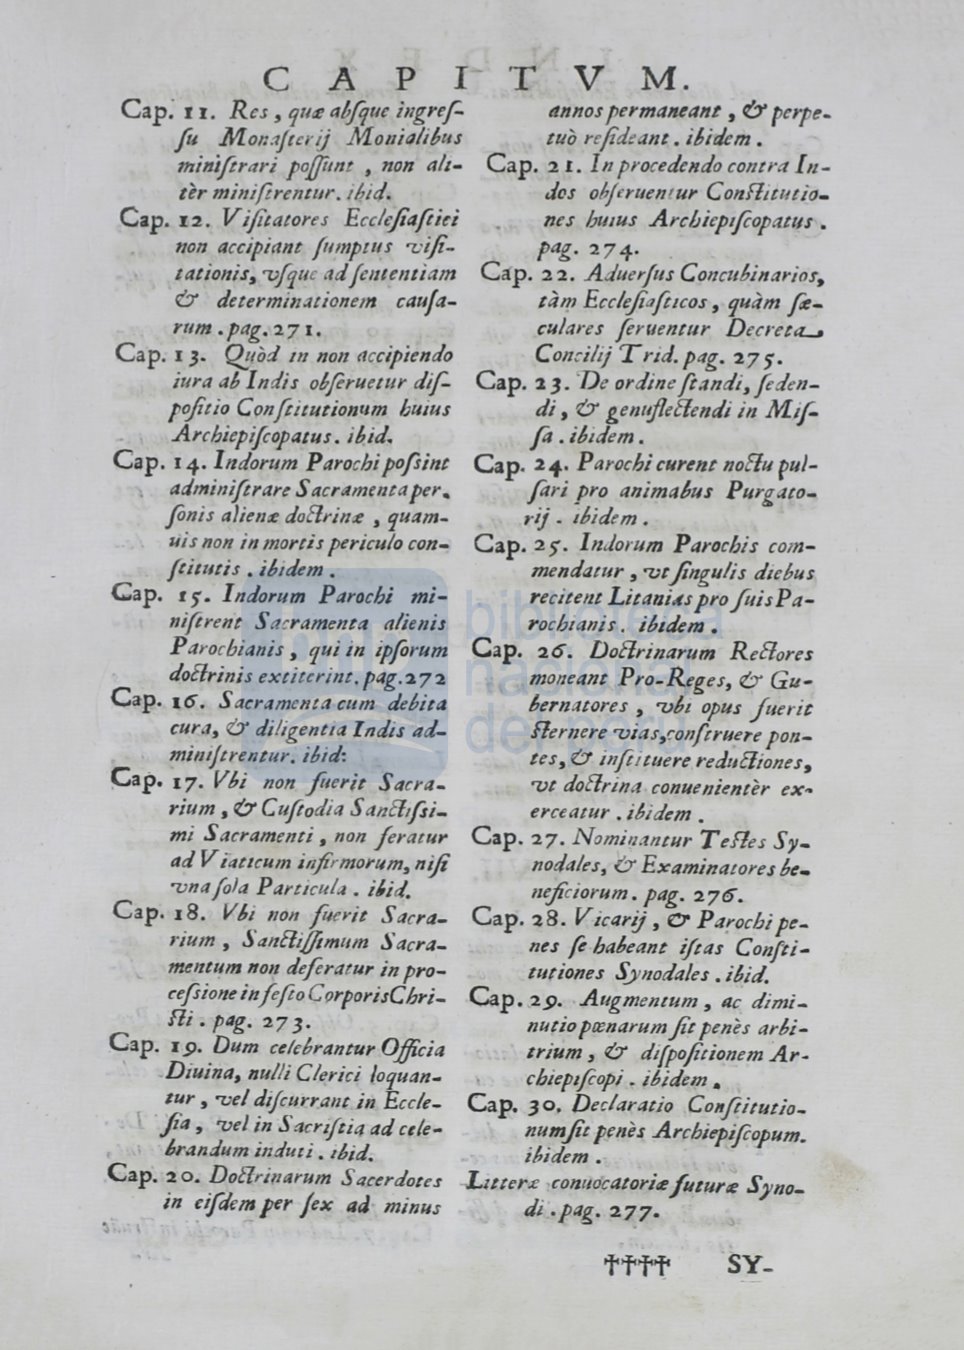 CAPITVM.
Cap. 11. Res, quæ abſque ingreſ-
ſu Monaſterij Monialibus
miniſtrari poſſunt, non ali-
tèr miniſtrentur. ibid.
Cap. 12. Viſitatores Eccleſiaſtici
non accipiant ſumptus viſi-
tationis, vſque ad ſententiam
& determinationem cauſa-
rum. pag. 271.
Cap. 13. Quòd in non accipiendo
iura ab Indis obſeruetur diſ-
poſitio Conſtitutionum huius
Archiepiſcopatus. ibid.
Cap. 14. Indorum Parochi poſsint
adminiſtrare Sacramenta per-
ſonis alienæ doctrinæ, quam-
uis non in mortis periculo con-
ſtitutis. ibidem.
Cap. 15. Indorum Parochi mi-
niſtrent Sacramenta alienis
Parochianis, qui in ipſorum
doctrinis extiterint. pag. 272
Cap. 16. Sacramenta cum debita
cura, & diligentia Indis ad-
miniſtrentur. ibid:
Cap. 17. Vbi non fuerit Sacra-
rium, & Cuſtodia Sanctiſsi-
mi Sacramenti, non feratur
ad Viaticum infirmorum, niſi
vna ſola Particula. ibid.
Cap. 18. Vbi non fuerit Sacra-
rium, Sanctiſſimum Sacra-
mentum non deferatur in pro-
ceſsione in feſto Corporis Chri-
ſti. pag. 273.
Cap. 19. Dum celebrantur Officia
Diuina, nulli Clerici loquan-
tur, vel diſcurrant in Eccle-
ſia, vel in Sacriſtia ad cele-
brandum induti. ibid.
Cap. 20. Doctrinarum Sacerdotes
in eiſdem per ſex ad minus
annos permaneant, & perpe-
tuò reſideant. ibidem.
Cap. 21. In procedendo contra In-
dos obſeruentur Conſtitutio-
nes huius Archiepiſcopatus.
pag. 274.
Cap. 22. Aduerſus Concubinarios,
tàm Eccleſiaſticos, quàm ſæ-
culares ſeruentur Decreta
Concilij Trid. pag. 275.
Cap. 23. De ordine ſtandi, ſeden-
di, & genuflectendi in Miſ-
ſa. ibidem.
Cap. 24. Parochi curent noctu pul-
ſari pro animabus Purgato-
rij. ibidem.
Cap. 25. Indorum Parochis com-
mendatur, vt ſingulis diebus
recitent Litanias pro ſuis Pa-
rochianis. ibidem.
Cap. 26. Doctrinarum Rectores
moneant Pro-Reges, & Gu-
bernatores, vbi opus fuerit
ſternere vias, conſtruere pon-
tes, & inſtituere reductiones,
vt doctrina conuenientèr ex-
erceatur. ibidem.
Cap. 27. Nominantur Teſtes Sy-
nodales, & Examinatores be-
neficiorum. pag. 276.
Cap. 28. Vicarij, & Parochi pe-
nes ſe habeant iſtas Conſti-
tutiones Synodales. ibid.
Cap. 29. Augmentum, ac dimi-
nutio pœnarum ſit penès arbi-
trium, & diſpoſitionem Ar-
chiepiſcopi. ibidem.
Cap. 30. Declaratio Conſtitutio-
num ſit penès Archiepiſcopum.
ibidem.
Litteræ conuocatoriæ futuræ Syno-
di. pag. 277.
†††† SY-
biblioteca
nacional
del perú